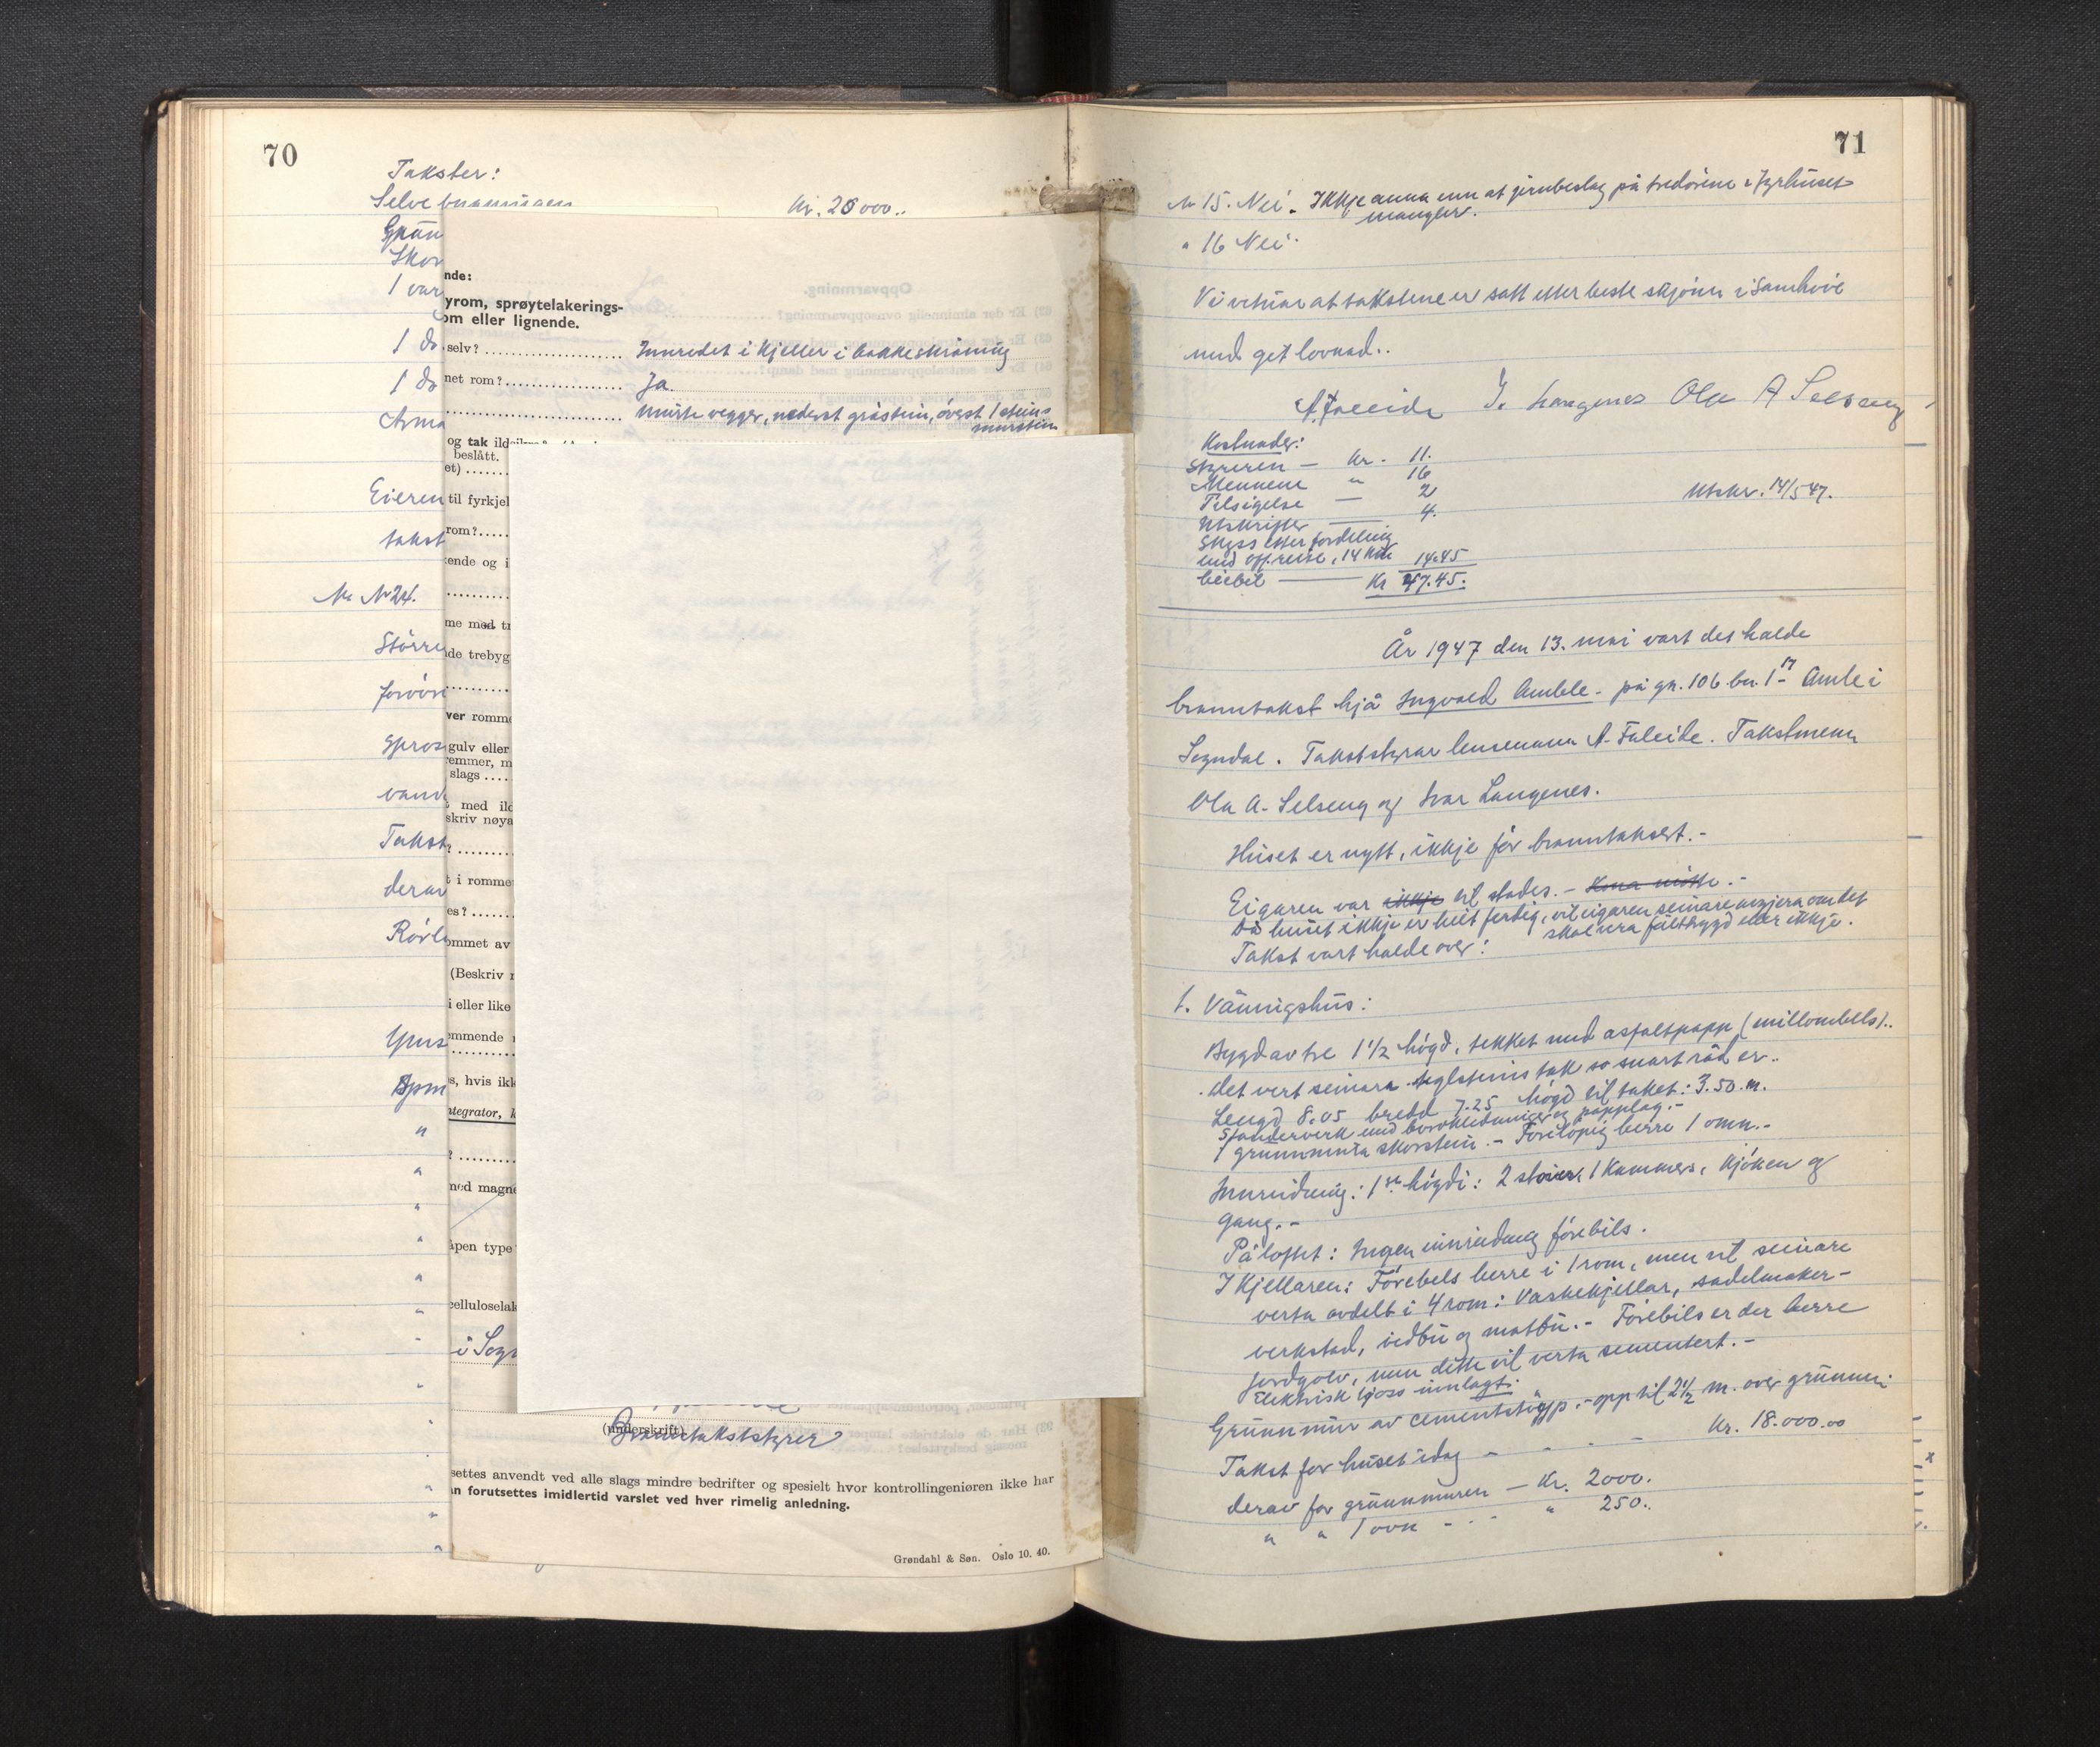 70
Takster:
Selve
Kr. 20 000..
Grun
Skor
1 var
1 do
1 do
Arma
Eieren
takst
Nr 24.
Større
forövri
Spros
vand
Takst
derav
Rörl
Spm
nde:
yrom, sprøytelakerings-
om eller lignende.
selv? Innredet i kjeller i bakkeskråning
net rom? Ja
murte vegger, nederst gråstein, överst 1 steins
murstein
og tak
beslått.
et)
til fyrkjel
rom?
ende og i
me med tr
de trebyg
ver romme
gulv eller
remmer, m
slags
med ild
skriv nøya
?
t i romme
es?
ommet av
(Beskriv
i eller like
ommende
s, hvis ikk
ntegrator, k
?
med magne
åpen type
celluloselak
i Sogn
(underskrift)
Branntakststyrer
settes anvendt ved alle slags mindre bedrifter og spesielt hvor kontrollingeniøren ikke har
n forutsettes imidlertid varslet ved hver rimelig anledning.
Grøndahl & Søn. Oslo 10. 40.
Oppvarming.
71
Nr 15. Nei. Ikkje anna enn at jirnbeslag på tredörene i fyrhuset
manglar.
" 16 Nei.
Vi vitnar at takstene er satt etter beste skjönn i samhöve
med get lovnad..
A. Faleide I. Langenes Ola A Selseng
Kostnader:
Styreren — Kr. 11.
Mennene " 16
Tilsigelse — 2
Utskrifter — 4.
Utskr. 14/5 47.
Skyss etter fordeling
med oppreise, 14 km 14.45
beibil — Kr 47.45.
År 1947 den 13. mai vart det halde
branntakst hjå Ingvald Amble - på gn. 106 bn. 1 17 - Amle i
Sogndal. Takststyrar lensmann A. Faleide. Takstmenn
Ola A. Selseng og Ivar Langenes.
Huset er nytt, ikkje för branntaksert. -
Eigaren var ikkje til stades. - Kona mötte. -
Då huset ikkje er heit ferdig, vil eigaren seinare avgjera om det
skal vera fulltbygd eller ikkje.
Takst vart halde over:
1. Våningshus:
Bygd av tre 1 1/2 högd, tekket med asfaltpapp (millombels)..
det vert seinare teglsteins tak so snart råd er..
Lengd 8.05 bredd 7.25 högd til taket: 3.50. m.
Standerverk med bordkledninger og papplag. -
1 grunnmura skorstein. - Forelöpig berre 1 omn. -
Innreidning: 1ste högdi: 2 stover, 1 kammers, kjöken og
gang. -
På loftet: Ingen innreidning förebils.
I Kjellaren: Förebels berre i 1 rom, men vil seinare
verta avdelt i 4 rom: Vaskekjellar, sadelmaker-
verkstad, vedbu og matbu. - Förebils er der berre
jordgolv, men dette vil verta sementert. -
Elektrisk ljos innlagt.
Grunnmur av cementstöyp. - opp til 2 1/2 m. over grunnen.
Takst for huset idag - - - - Kr. 18.000.00
derav for grunnmuren — Kr. 2000.
" " 1 ovn - - - " 250..